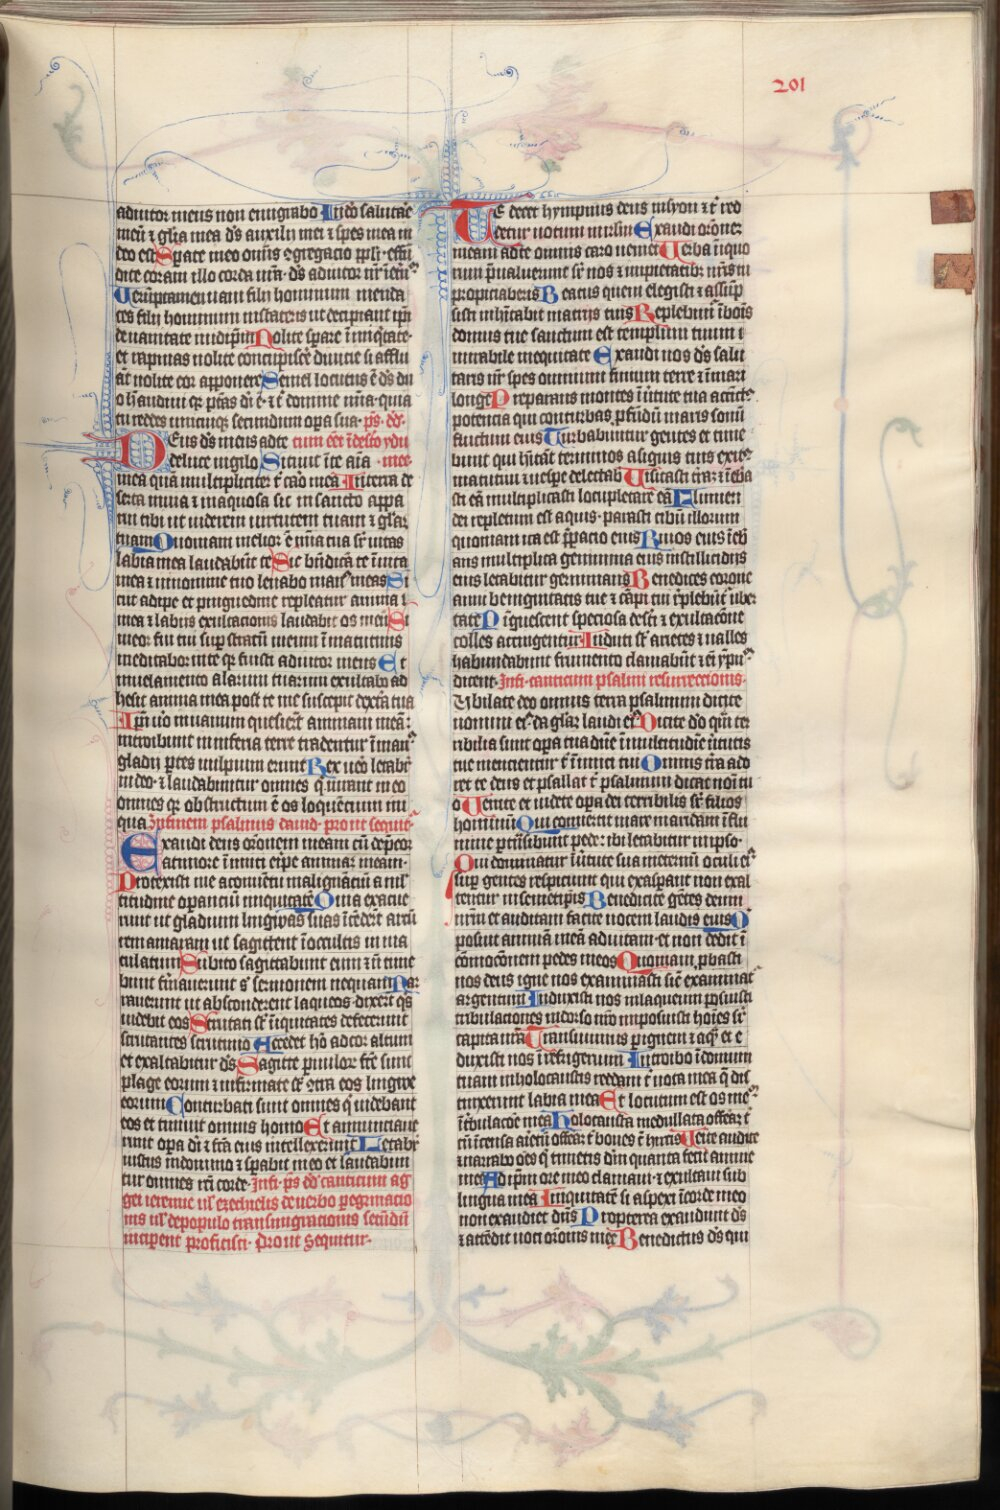 201
adiutor meus non emigrabo In deo salutare
meū ⁊ gl̄ia mea dͣs auxilii mei ⁊ spes mea in
deo est Sp̄ate in eo om̄is ꝯgregacio pp̄li effū
dite coram illo corda vr̄a ds̄ adiutor nr̄ in et̄nū
Verūptamen vani filii hominum menda
ces filii hominum in stateris ut decipiant ip̄i
de vanitate in idip̄m Nolite sp̄are ī iniq̄tate
et rapinas nolite concupiscē̄ diuicie si afflu
āt nolite cor apponere Semel locutus ē ds̄ du
o h̄ audiui q̄ ptās dī ē ⁊ t̄ domine mīa quia
tu reddes unicuiq; secundum opera sua ps̄ dd̄
Deus ds̄ meus ad te cum eēt ī deserto ydu
de luce vigilo Sitiuit ī te aīa mee
mea quā multipliciter t̄ caro mea In terra de
serta inuia ⁊ inaquosa sic in sancto appa
rui tibi ut viderem virtutem tuam ⁊ gl̄am
tuam Quoniam melior ē mīa tua sr̄ vitas
labia mea laudabūt te Sic bn̄dicā te ī uita
mea ⁊ in nomine tuo leuabo manꝰ meas Si
cut adipe et pinguedine repleatur anima
mea ⁊ labiis exultacionis laudabit os meū Si
memor fui tui sup̄ stratū meum ī matutinis
meditabor in te q̄ fuisti adiutor meus Et
in uelamento alarum tuarum exultabo ad
hesit anima mea post te me suscepit dext̄a tua
Ip̄i uero in uanum quesierūt animam meā
introibunt in inferiora terre tradentur ī manꝰ
gladii p̄tes uulpium erunt Rex uero letabit̄
in deo ⁊ laudabuntur omnes q̄ iurant in eo
omnes q̄ obstructum ē os loquētium ini
qua In finem psalmus dauid prout sequit̄
Exaudi deus orōnem meam cū dep̄cor
a timore ī imici eripe animam meam
Protexisti me a conuētu malignātiū a mul
titudine operantiū iniquitatē Quia exacue
runt ut gladium linguas suas ītēderūt arcū
rem amaram ut sagittent ī occultis inma
culatum Subito sagittabunt eum ⁊ nō time
bunt firmauerunt sꝰ sermonem nequam Nar
rauerunt ut absconderent laqueos dixerūt q̄s
uidebit eos Scrutati st̄ iniquitates defecerunt
scrutantes scrutinio Accedet ho ad cor altum
et exaltabitur ds̄ Sagitte paruulor̄ fc̄te sunt
plage eorum ⁊ infirmate st̄ ꝯtra eos lingwe
eorum Conturbati sunt omnes q̄ uidebant
eos et timuit omnis homo Et annunciaue
runt opera dī ⁊ fc̄ta eius intellexerunt Letabit̄
iustus in domino ⁊ sp̄abit in eo et laudabun
tur omnes recti corde In fi ps̄ dd̄ canticum ag
gei ieremie ul̄ ezechielis de uerbo pegrinacio
nis ul̄ de populo transmigracionis secūdū
incipent proficisci Prout sequitur
Te decet hympnus deus in syon ⁊ t̄ red
detur uotum in irl̄m Exaudi orōnem
meam ad te omnis caro ueniet Verba iniquo
rum p̄ualuerunt sr̄ nos ⁊ impietatibꝰ nr̄is tu
propiciaberis Beatus quem elegisti ⁊ assūp
sisti inhītabit in atriis tuis Replebimur ī bonis
domus tue sanctum est templum tuum
mirabile in equitate Exaudi nos ds̄ salu
taris nr̄ spes omnium finium terre ⁊ ī mari
longe Preparans montes ī uirtute tua accinctꝰ
potencia qui conturbas p̄fundū maris sonū
fluctuum eius Turbabuntur gentes et time
bunt qui hītāt terminos a signis tuis exitꝰ
matutini ⁊ uesp̄e delectab̄ Visitasti t̄rā ⁊ īebria
sti eā multiplicasti locupletare eā Flumen
dei repletum est aquis parasti cibū illorum
quoniam ita est p̄pacio eius Riuos eius īebri
ans multiplica genimina eius in stillicidiis
eius letabitur germinans Benedices corone
anni benignitatis tue ⁊ cāpi tui replebūt̄ uber
tate Pinguescent speciosa deserti ⁊ exultacōne
colles accingentur Induti st̄ arietes ⁊ ualles
habundabunt frumento clamabūt ⁊ eī ympnū
dicent In fi canticum psalmi resurreccionis
Iubilate deo omnis terra psalmum dicite
nomini eiꝰ da gl̄am laudi eiꝰ Dicite deo q̄m ter
ribilia sunt opera tua dn̄e ī multitudīe uirtutis
tue mencientur t̄ inimici tui Omnis terra ado
ret te deus et psallat t̄ psalmum dicat nomini tu
o Venite et uidete opera dei terribilis sr̄ filios
hominū Qui conuertit mare in aridam ī flu
mine pertrāsibunt pede ibi letabitur in ipso
Qui dominatur ī uirtute sua in eternū oculi eiꝰ
sup̄ gentes respiciunt qui exasperant non exal
tentur in semetip̄is Benedicite gētes deum
nr̄m et auditam facite uocem laudis eius Q
posuit animā meā ad uitam et non dedit ī
cōmocōnem pedes meos Quoniam p̄basti
nos deus igne nos examinasti sic̄ examinatꝰ
argentum Induxisti nos in laqueum posuisti
tribulaciones in dorso nr̄o imposuisti hoīes sr̄
capita nr̄a Transiuimus p̄ ignem ⁊ aq̄ et e
duxisti nos ī refrigerium Introibo ī domum
tuam in holocaustis reddam t̄ uota mea q̄ dis
tinxerunt labia mea Et locutum est os meū
ī tribulacōe mea Holocausta medullata offerā t̄
cū incensa arietū offerā t̄ boues cū hyrcis Venite audite
⁊ narrabo oēs q̄ timetis dm̄ quanta fecit anime
mee Ad ip̄m ore meo clamaui ⁊ exultaui sub
lingua mea Iniquitatē si aspexi ī corde meo
non exaudiet dn̄s Propterea exaudiuit ds̄
⁊ attēdit uoci orōnis mee Benedictus ds̄ qui